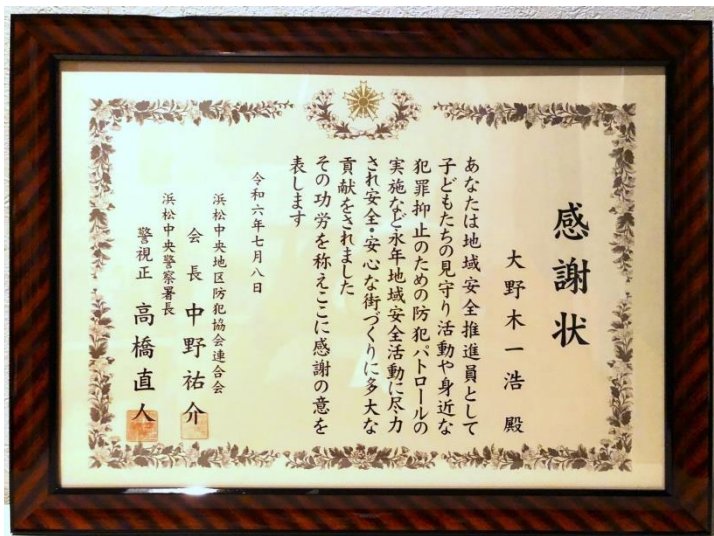 感謝状
大野木一浩 殿
あなたは地域安全推進員として
子どもたちの見守り活動や身近な
犯罪抑止のための防犯パトロールの
実施など永年地域安全活動に尽力
され安全・安心な街づくりに多大な
貢献をされました
その功労を称えここに感謝の意を
表します
令和六年七月八日
浜松中央地区防犯協会連合会
会長 中野祐介
浜松中央警察署長
警視正 高橋直人